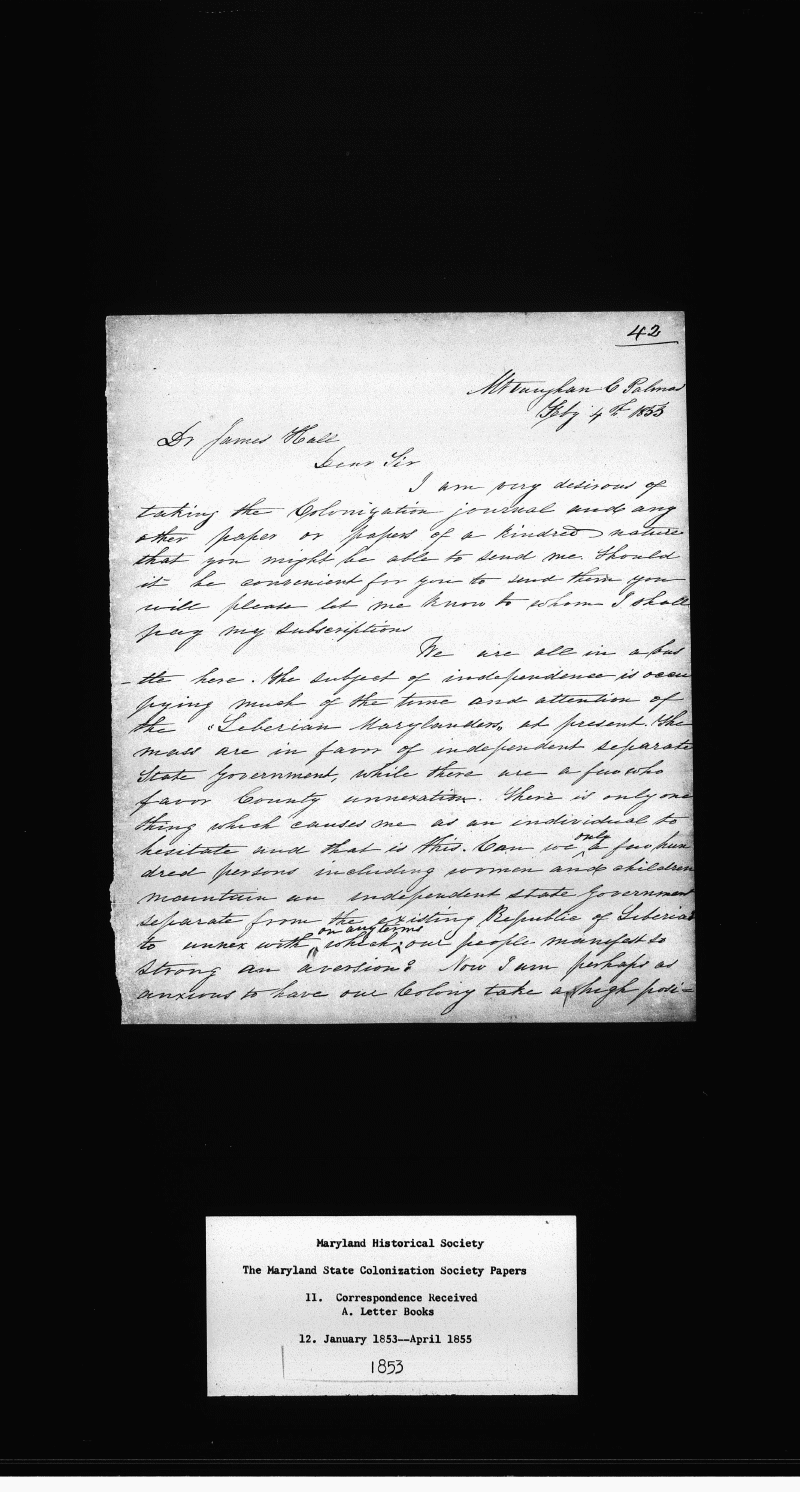 42
Mt Vaughan C Palmas
Feby 4th 1853
Dr James Hall
Dear Sir
I am very desirous of
taking the Colonization journal and any
other paper or papers of a kindred nature
that you might be able to send me. Should
it be convenient for you to send them you
will please let me know to whom I shall
pay my subscriptions
We are all in a bus
-tle here. The subject of independence is occu
pying much of the time and attention of
the "Liberian Marylanders" at present. The
mass are in favor of independent separate
State Government, while there are a few who
favor County annexation. There is only one
thing which causes me as an individual to
hesitate and that is this. Can we only a few hun
dred persons including women and children
maintain an independent state Government
separate from the existing Republic of Liberia
to annex with which, on any terms our people manifest so
strong an aversion? Now I am perhaps as
anxious to have our Colony take a high posi=
Maryland Historical Society
The Maryland State Colonization Society Papers
11. Correspondence Received
A. Letter Books
12. January 1853--April 1855
1853